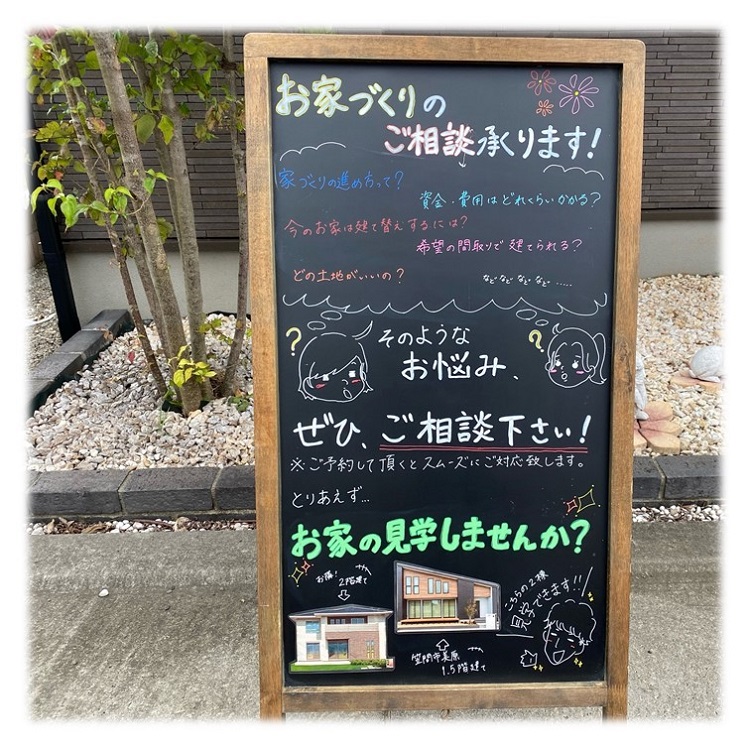 お家づくりの
ご相談承ります!
家づくりの進め方って?
資金・費用はどれくらいかかる?
今のお家は建て替えするには?
希望の間取りで建てられる?
どの土地がいいの?
などなどなどなど……
?
?
そのような
お悩み、
ぜひ、ご相談下さい!
※ご予約して頂くとスムーズにご対応致します。
とりあえず…
お家の見学しませんか?
お隣!
2階建て
こちらの2棟
見学できます!!
笠間市美原
1.5階建て